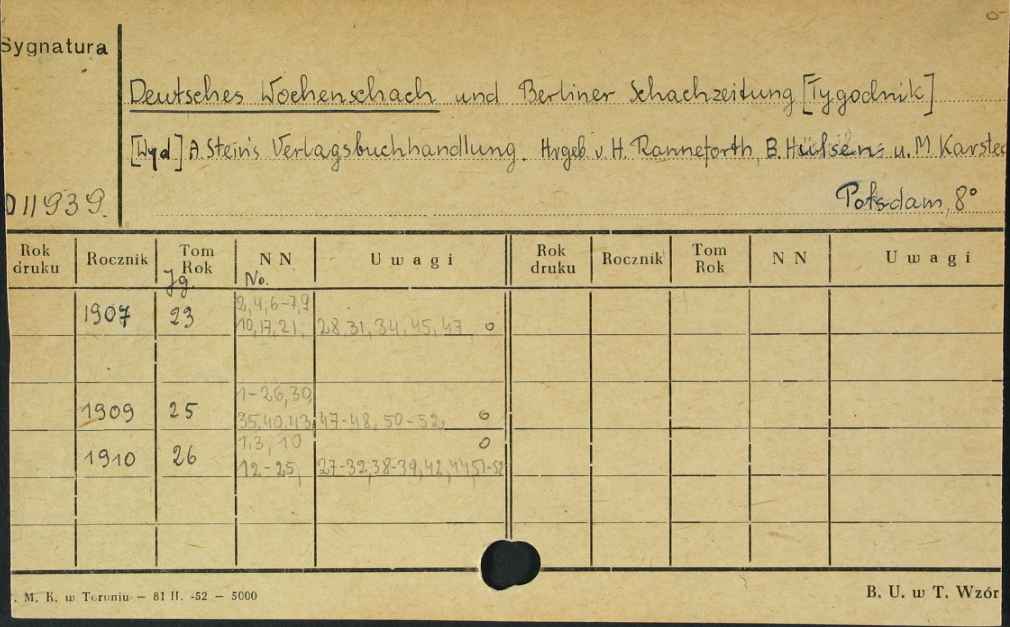 Sygnatura
Deutsches Wochenschach und Berliner Schachzeitung [Tygodnik]
[Wyd] A. Stein's Verlagsbuchhandlung. Hrgeb v. H. Ranneforth, B. Hülsen u. M. Karsted
Potsdam, 8°
011939.
Rok druku Rocznik Tom Rok NN Uwagi Rok druku Rocznik Tom Rok NN Uwagi
Jg. No.
1907 23 2,4,6-7,9
10,17,21, 28,31,34,45,47 o
1909 25 1-26,30,
35,40,43, 47-48, 50-52, o
1910 26 1,3,10 o
12-25, 27-32,38-39,42,44,51-52
. M. K. w Toruniu - 81 II. -52 - 5000
B. U. w T. Wzór